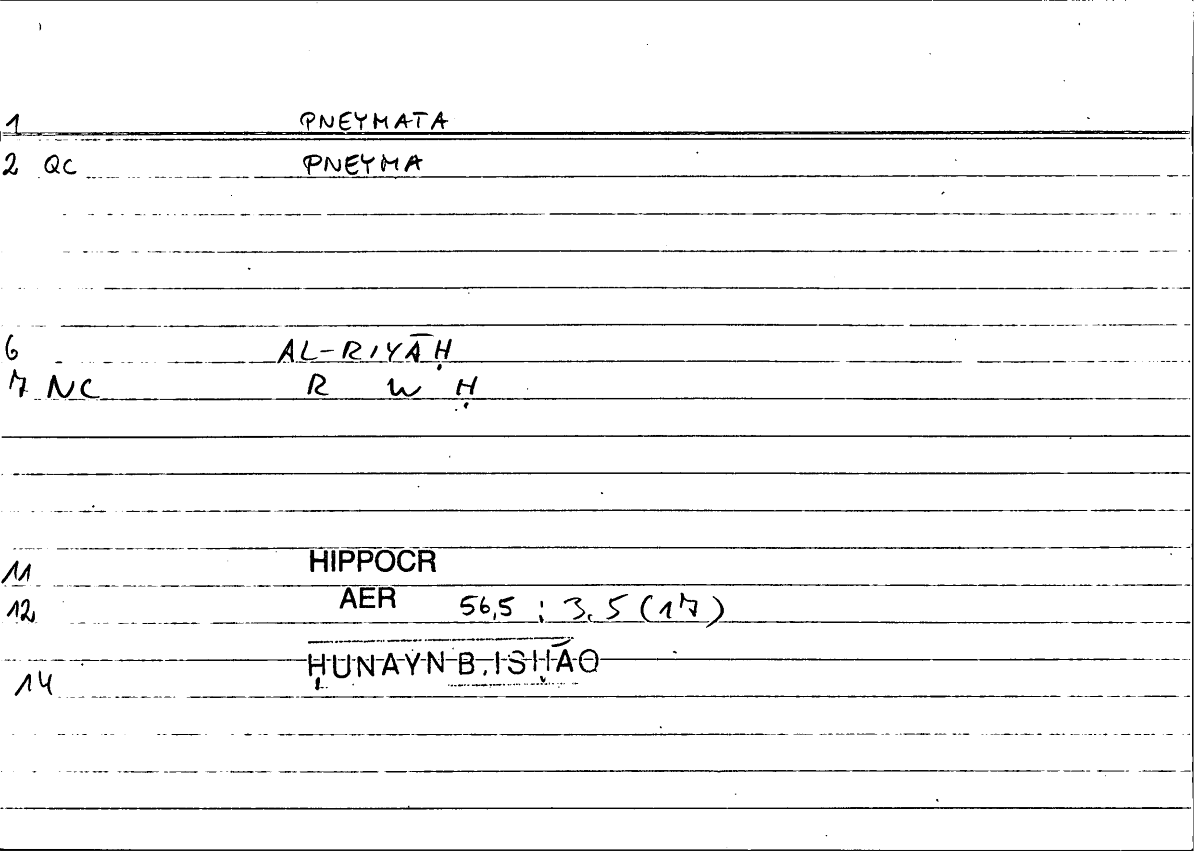 1 PNEYMATA
2 QC PNEYMA
6 AL-RIYĀḤ
7 NC R W Ḥ
11 HIPPOCR
12 AER 56,5 ; 3,5 (17)
14 ḤUNAYN B. ISḤĀQ